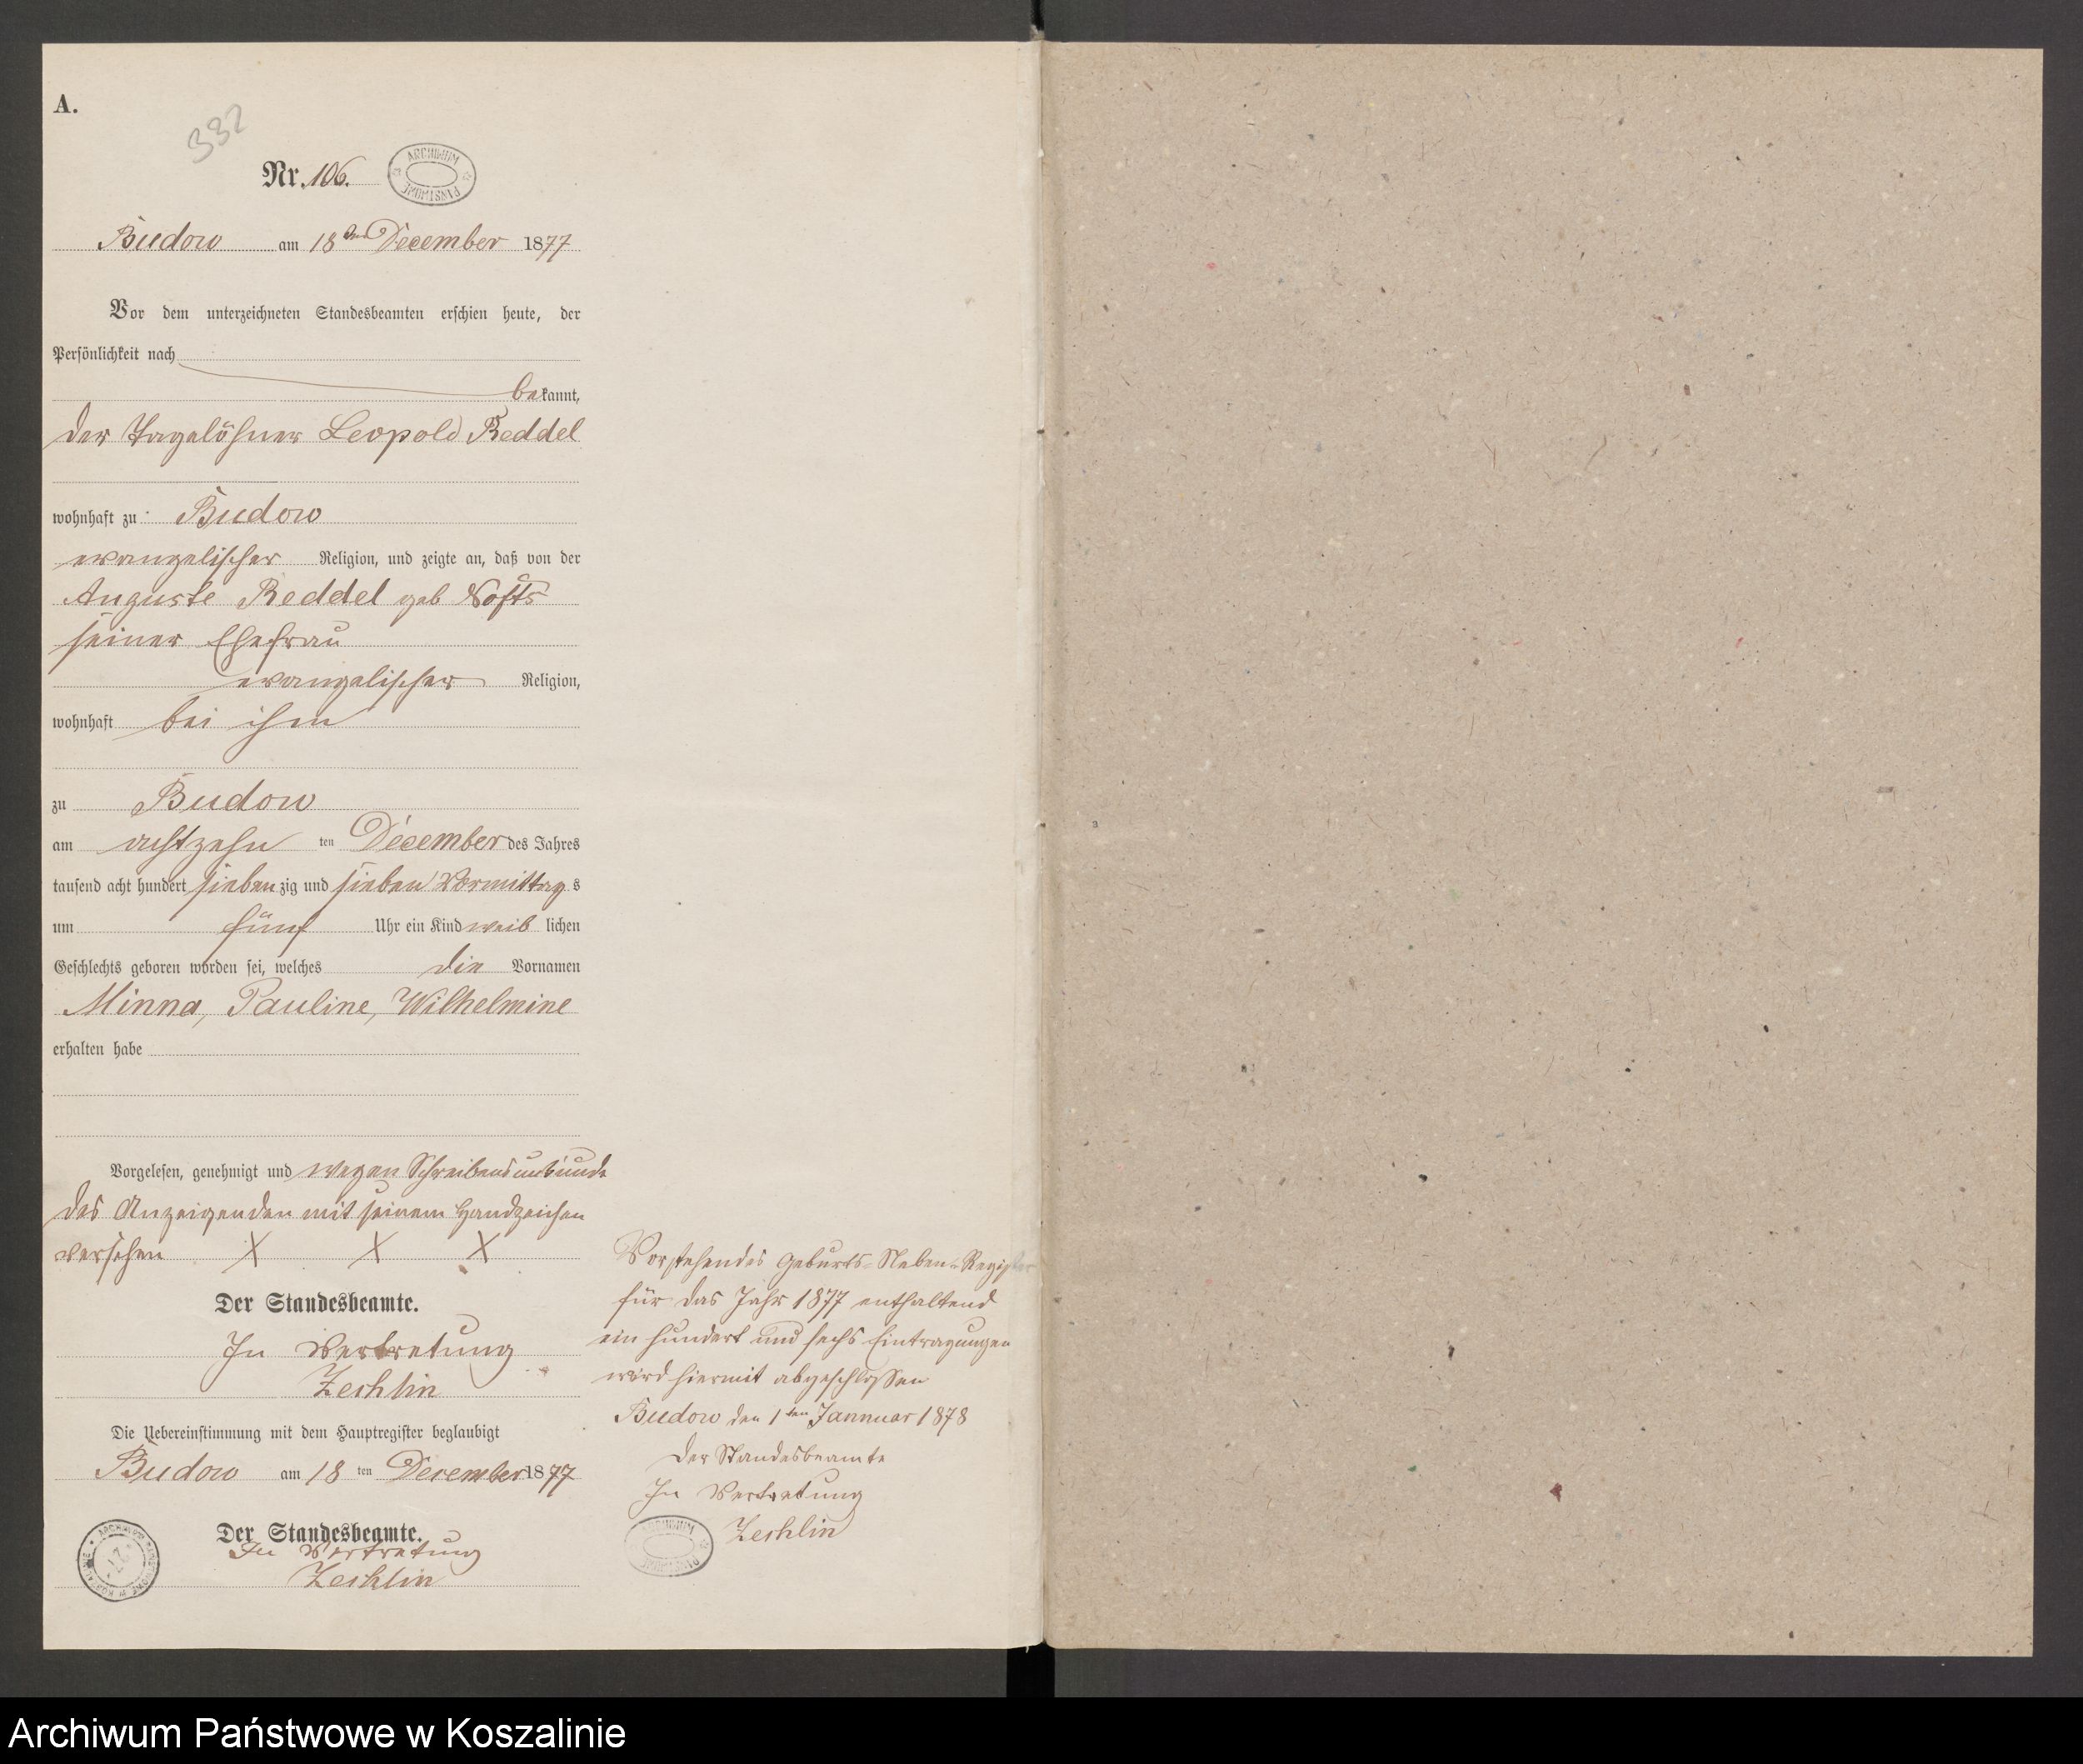 A.
332
Nr. 106.
ARCHIWUM PAŃSTWOWE
Budow am 18ten December 1877
Vor dem unterzeichneten Standesbeamten erschien heute, der
Persönlichkeit nach
bekannt,
der Tagelöhner Leopold Reddel
wohnhaft zu Budow
evangelischer Religion, und zeigte an, daß von der
Auguste Reddel geb
seiner Ehefrau
evangelischer Religion,
wohnhaft bei ihm
zu Budow
am achtzehn ten December des Jahres
tausend acht hundert sieben zig und sieben Vormittag s
um fünf Uhr ein Kind weib lichen
Geschlechts geboren worden sei, welches die Vornamen
Minna, Pauline, Wilhelmine
erhalten habe
Vorgelesen, genehmigt und wegen Schreibensunkunde
des Anzeigenden mit seinem Handzeichen
versehen X X X
Der Standesbeamte.
In Vertretung
Zechlin
Die Uebereinstimmung mit dem Hauptregister beglaubigt
Budow am 18 ten December 1877
Der Standesbeamte.
In Vertretung
Zechlin
Vorstehendes Geburts-Neben-Register
für das Jahr 1877 enthaltend
ein hundert und sechs Eintragungen
wird hiermit abgeschlossen
Budow den 1ten Januar 1878
Der Standesbeamte
In Vertretung
Zechlin
ARCHIWUM PAŃSTWOWE
Archiwum Państwowe w Koszalinie